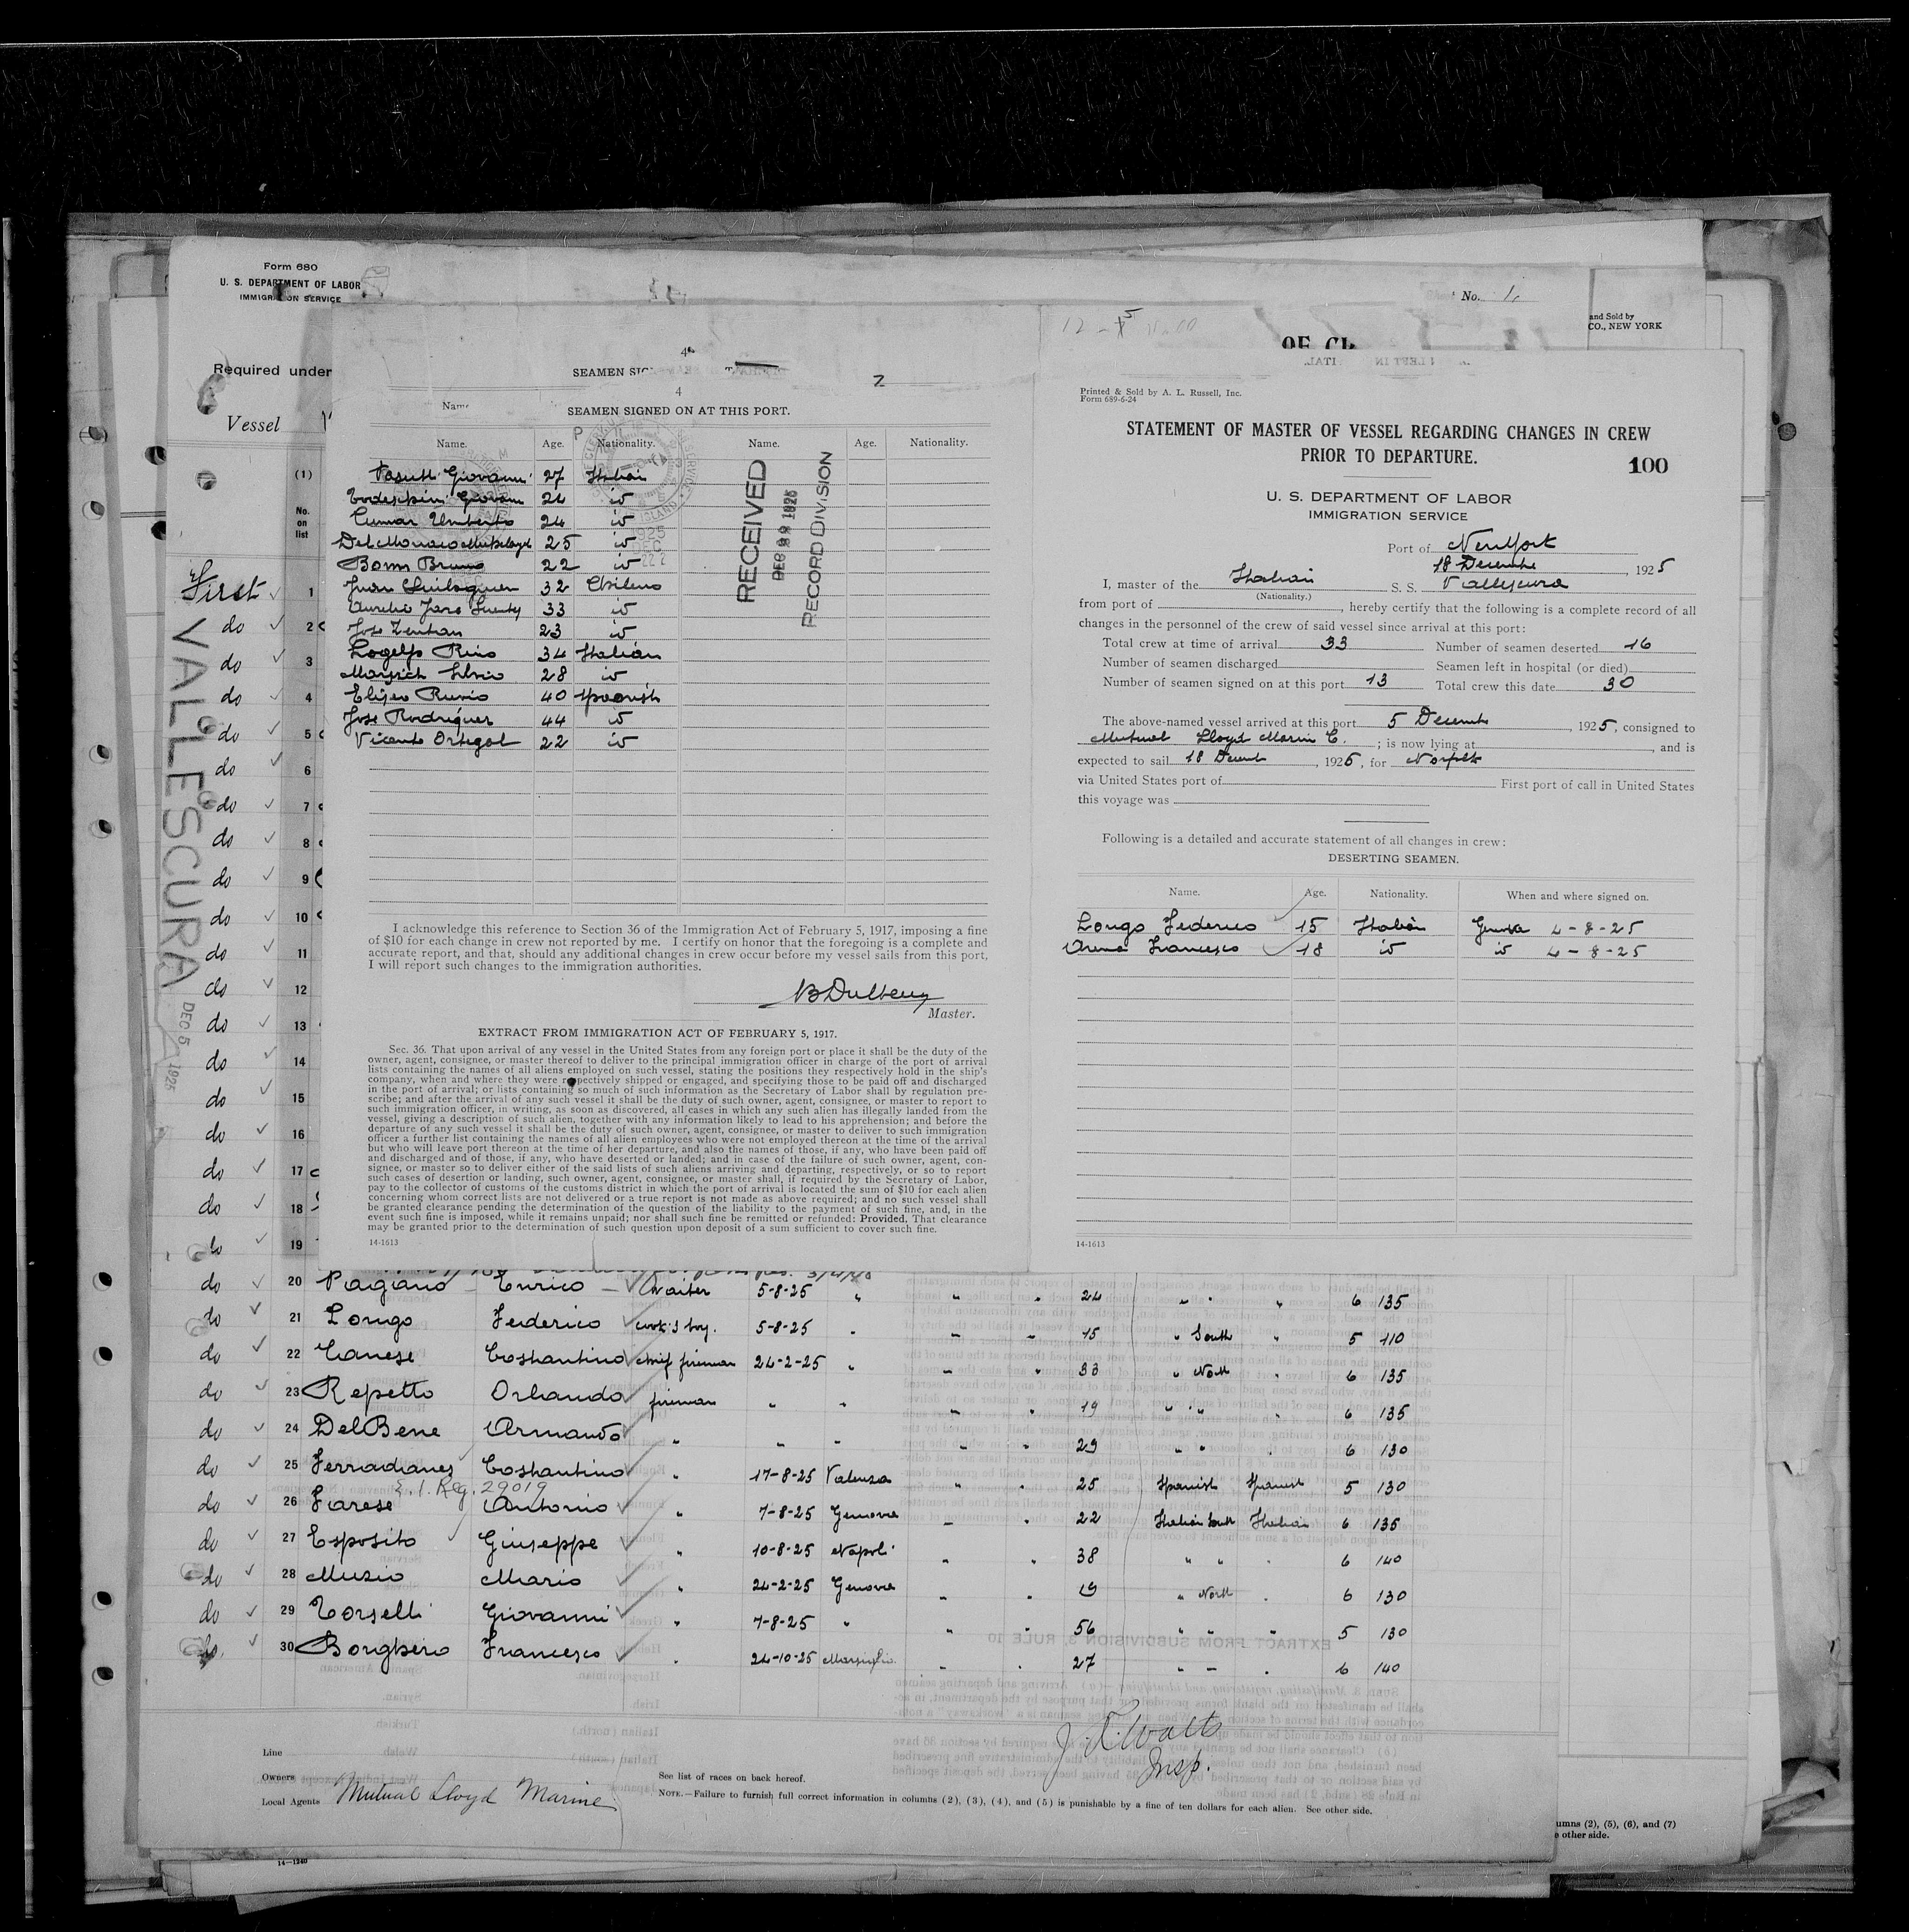 Form 680
U. S. DEPARTMENT OF LABOR
IMMIGRATION SERVICE
No. 1
and Sold by
CO., NEW YORK
Required under
Vessel
(1)
No.
on
list
VALLESCURA DEC 5 1925
First 1
do 2
do 3
do 4
do 5
do 6
do 7
do 8
do 9
do 10
do 11
do 12
do 13
do 14
do 15
do 16
do 17
do 18
do 19
4
SEAMEN SIG
Name
4
SEAMEN SIGNED ON AT THIS PORT.
Name. Age. Nationality. Name. Age. Nationality.
Giovanni 27 Italian
Giovann 24 iv
Umberto 24 iv
Del Monaco 25 iv
Bruno 22 iv
Juan 32 Chileno
Aurelio Jara 33 iv
Jose 23 iv
Rino 34 Italian
Silvio 28 iv
Eliseo Ruvio 40 Spanish
Jose Rodriguez 44 iv
Vicente Ortegal 22 iv
RECEIVED
DEC 1925
RECORD DIVISION
I acknowledge this reference to Section 36 of the Immigration Act of February 5, 1917, imposing a fine
of $10 for each change in crew not reported by me. I certify on honor that the foregoing is a complete and
accurate report, and that, should any additional changes in crew occur before my vessel sails from this port,
I will report such changes to the immigration authorities.
Master.
EXTRACT FROM IMMIGRATION ACT OF FEBRUARY 5, 1917.
Sec. 36. That upon arrival of any vessel in the United States from any foreign port or place it shall be the duty of the
owner, agent, consignee, or master thereof to deliver to the principal immigration officer in charge of the port of arrival
lists containing the names of all aliens employed on such vessel, stating the positions they respectively hold in the ship's
company, when and where they were respectively shipped or engaged, and specifying those to be paid off and discharged
in the port of arrival; or lists containing so much of such information as the Secretary of Labor shall by regulation pre-
scribe; and after the arrival of any such vessel it shall be the duty of such owner, agent, consignee, or master to report to
such immigration officer, in writing, as soon as discovered, all cases in which any such alien has illegally landed from the
vessel, giving a description of such alien, together with any information likely to lead to his apprehension; and before the
departure of any such vessel it shall be the duty of such owner, agent, consignee, or master to deliver to such immigration
officer a further list containing the names of all alien employees who were not employed thereon at the time of the arrival
but who will leave port thereon at the time of her departure, and also the names of those, if any, who have been paid off
and discharged and of those, if any, who have deserted or landed; and in case of the failure of such owner, agent, con-
signee, or master so to deliver either of the said lists of such aliens arriving and departing, respectively, or so to report
such cases of desertion or landing, such owner, agent, consignee, or master shall, if required by the Secretary of Labor,
pay to the collector of customs of the customs district in which the port of arrival is located the sum of $10 for each alien
concerning whom correct lists are not delivered or a true report is not made as above required; and no such vessel shall
be granted clearance pending the determination of the question of the liability to the payment of such fine, and, in the
event such fine is imposed, while it remains unpaid; nor shall such fine be remitted or refunded: Provided, That clearance
may be granted prior to the determination of such question upon deposit of a sum sufficient to cover such fine.
14-1613
Printed & Sold by A. L. Russell, Inc.
Form 689-6-24
STATEMENT OF MASTER OF VESSEL REGARDING CHANGES IN CREW
PRIOR TO DEPARTURE.
100
U. S. DEPARTMENT OF LABOR
IMMIGRATION SERVICE
Port of New York
18 Decembre, 1925
I, master of the Italian S. S. Vallescura
(Nationality.)
from port of , hereby certify that the following is a complete record of all
changes in the personnel of the crew of said vessel since arrival at this port:
Total crew at time of arrival 33 Number of seamen deserted 16
Number of seamen discharged Seamen left in hospital (or died)
Number of seamen signed on at this port 13 Total crew this date 30
The above-named vessel arrived at this port 5 Decembre, 1925, consigned to
Mutual Lloyd Marin C. ; is now lying at , and is
expected to sail 18 Decemb, 1925, for Norfolk
via United States port of First port of call in United States
this voyage was
Following is a detailed and accurate statement of all changes in crew:
DESERTING SEAMEN.
Name. Age. Nationality. When and where signed on.
Longo Federico 15 Italian Genova 4-8-25
Arena Francesco 18 iv iv 4-8-25
14-1613
do 20 Pagano Enrico Waiter 5-8-25 " " " 24 " " " 6 135
do 21 Longo Federico cook's boy. 5-8-25 " " " 15 " South " 5 110
do 22 Canese Costantino chief fireman 24-2-25 " " " 33 " North " 6 135
do 23 Repetto Orlando fireman " " " " 19 " " " 6 135
do 24 DelBene Armando " " " " " 29 " " " 6 130
do 25 Costantino " 17-8-25 Valenza " " 25 Spanish Spanish 5 130
E.I. Reg. 29019
do 26 Farese Antonio " 7-8-25 Genova " " 22 Italian South Italian 6 135
do 27 Esposito Giuseppe " 10-8-25 Napoli " " 38 " " " 6 140
do 28 Muzio Mario " 24-2-25 Genova " " 19 " North " 6 130
do 29 Torselli Giovanni " 7-8-25 " " " 56 " " " 5 130
do 30 Borghero Francesco " 24-10-25 Marsiglia " " 27 " " " 6 140
J. Watts
Insp.
Line
Owners
Local Agents Mutual Lloyd Marine
See list of races on back hereof.
NOTE.—Failure to furnish full correct information in columns (2), (3), (4), and (5) is punishable by a fine of ten dollars for each alien. See other side.
umns (2), (5), (6), and (7)
e other side.
14—1240